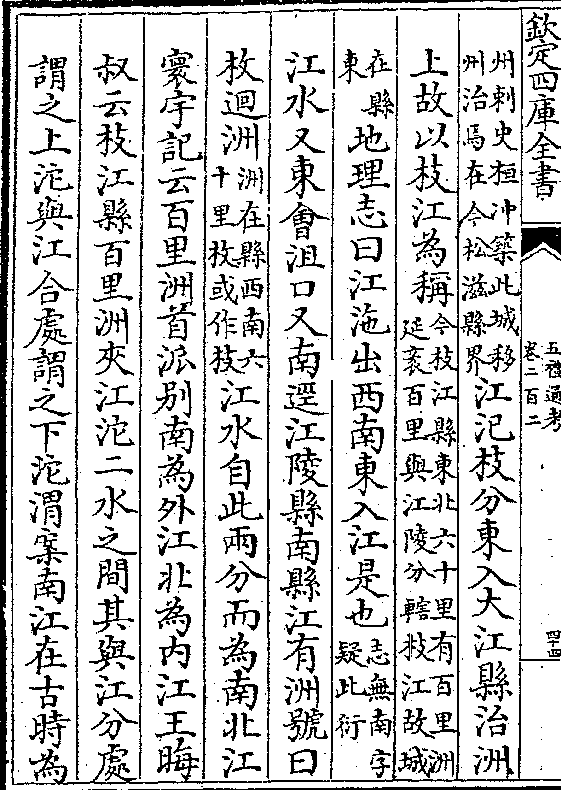 欽定四庫全書
五禮通考
卷二百二
四十四
州刺史桓沖築此城移州治焉在今松滋縣界江汜枝分東入大江縣治洲
上故以枝江為稱今枝江縣東北六十里有百里洲延袤百里與江陵分轄枝江故城
在縣東地理志曰江沲出西南東入江是也志無南字疑此衍
江水又東會沮口又南逕江陵縣南縣江有洲號曰
枚迴洲洲在縣西南六十里枚或作枝江水自此兩分而為南北江
寰宇記云百里洲首派別南為外江北為内江王晦
叔云枝江縣百里洲夾江沱二水之間其與江分處
謂之上沱與江合處謂之下沱渭案南江在古時為